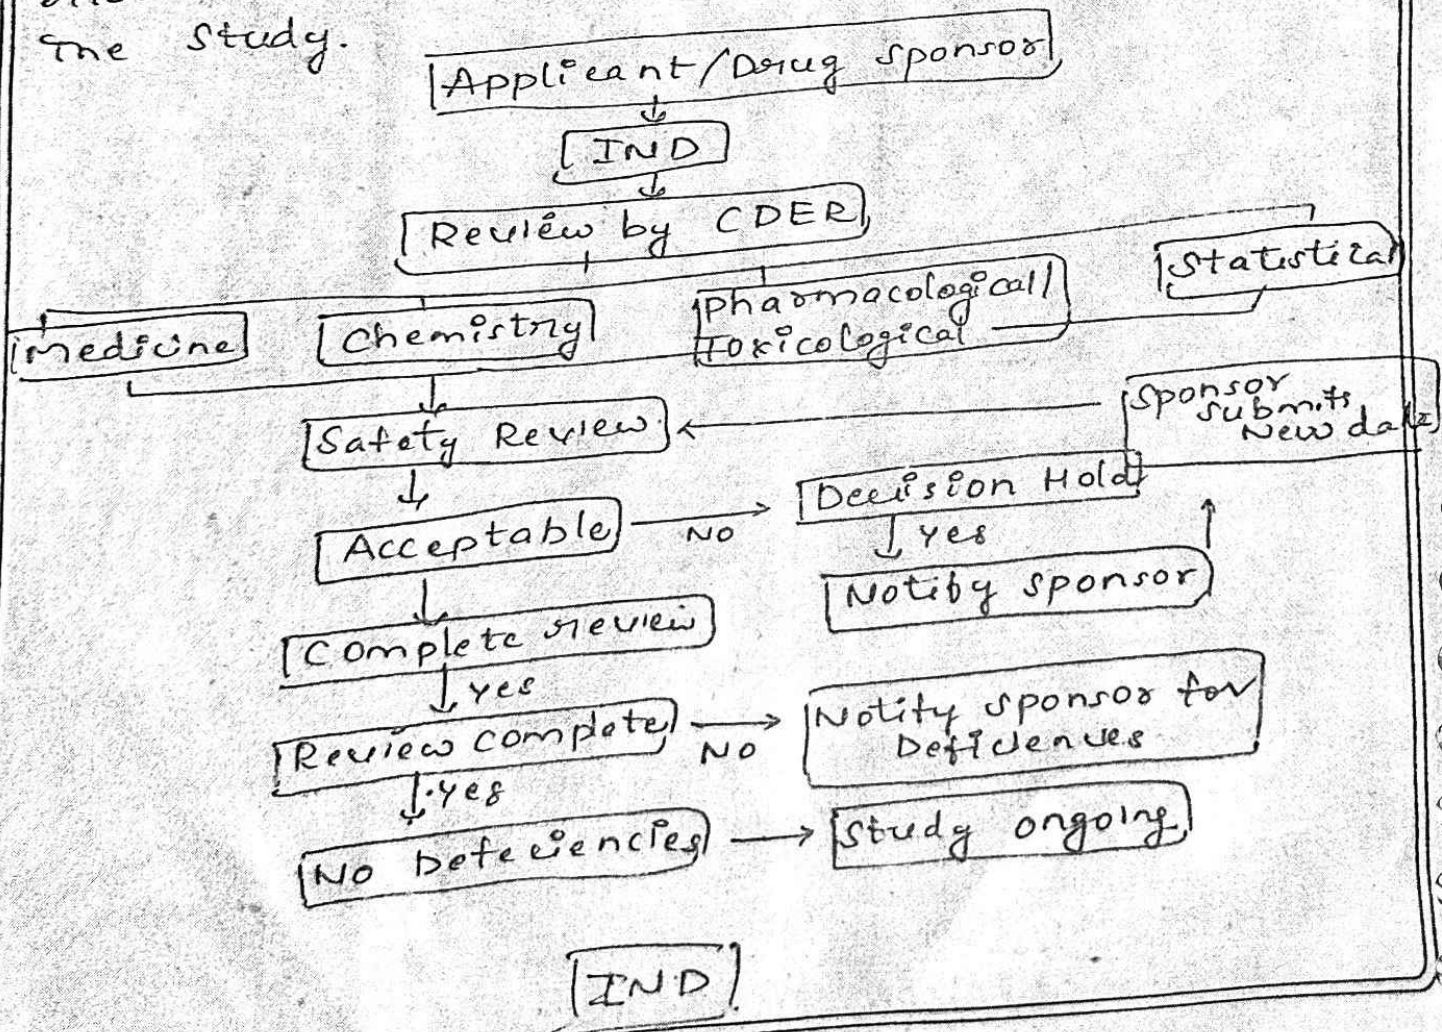 The study.
Applicant/Drug sponsor
IND
Review by CDER
Medicine
Chemistry
Pharmacological/
Toxicological
Statistical
Safety Review
Sponsor
submits
New data
Acceptable
NO
Decision Hold
Yes
Notify sponsor
Complete review
Yes
Review complete
NO
Notify sponsor for
Deficiences
Yes
No Deficiencies
Study ongoing
IND